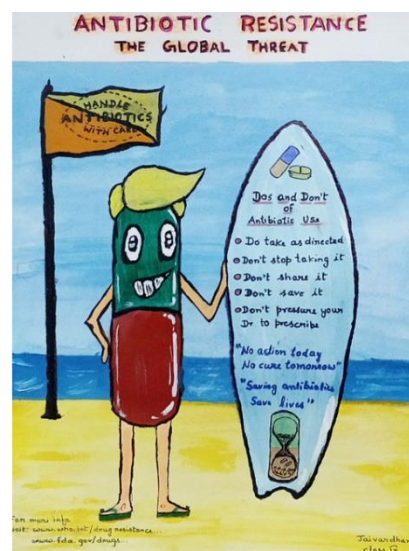 ANTIBIOTIC RESISTANCE
THE GLOBAL THREAT
HANDLE
ANTIBIOTICS
WITH CARE
Dos and Don't
of
Antibiotic Use
Do take as directed
Don't stop taking it
Don't share it
Don't save it
Don't pressure your
Dr to prescribe
"No action today
No cure tomorrow"
"Saving antibiotics
Save lives"
For more info
visit: www.who.int/drug resistance...
www.fda.gov/drugs...
Jaivardhan
class